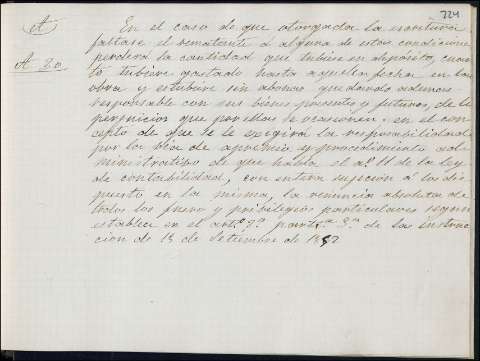 724
A
A 20
En el caso de que otorgada la escritura
faltase el rematante á alguna de estas condiciones
perderá la cantidad que tubiere en deposito, cuan
to tubiere gastado hasta aquella fecha en la
obra y estubiere sin abonar quedando ademas
responsable con sus bienes presentes y futuros, de los
perjuicios que por ellas se ocasionen: en el con
cepto de que se le exigirá la responsabilidad
por la via de apremio y procedimiento ad
ministrativo de que habla el aº 11 de la ley
de contabilidad, con entera sujecion á lo dis
puesto en la misma, la renuncia absoluta de
todos los fueros y privilegios particulares segun
establece en el artº 9º parrº 3º de las instruc
cion de 18 de Setiembre de 1852